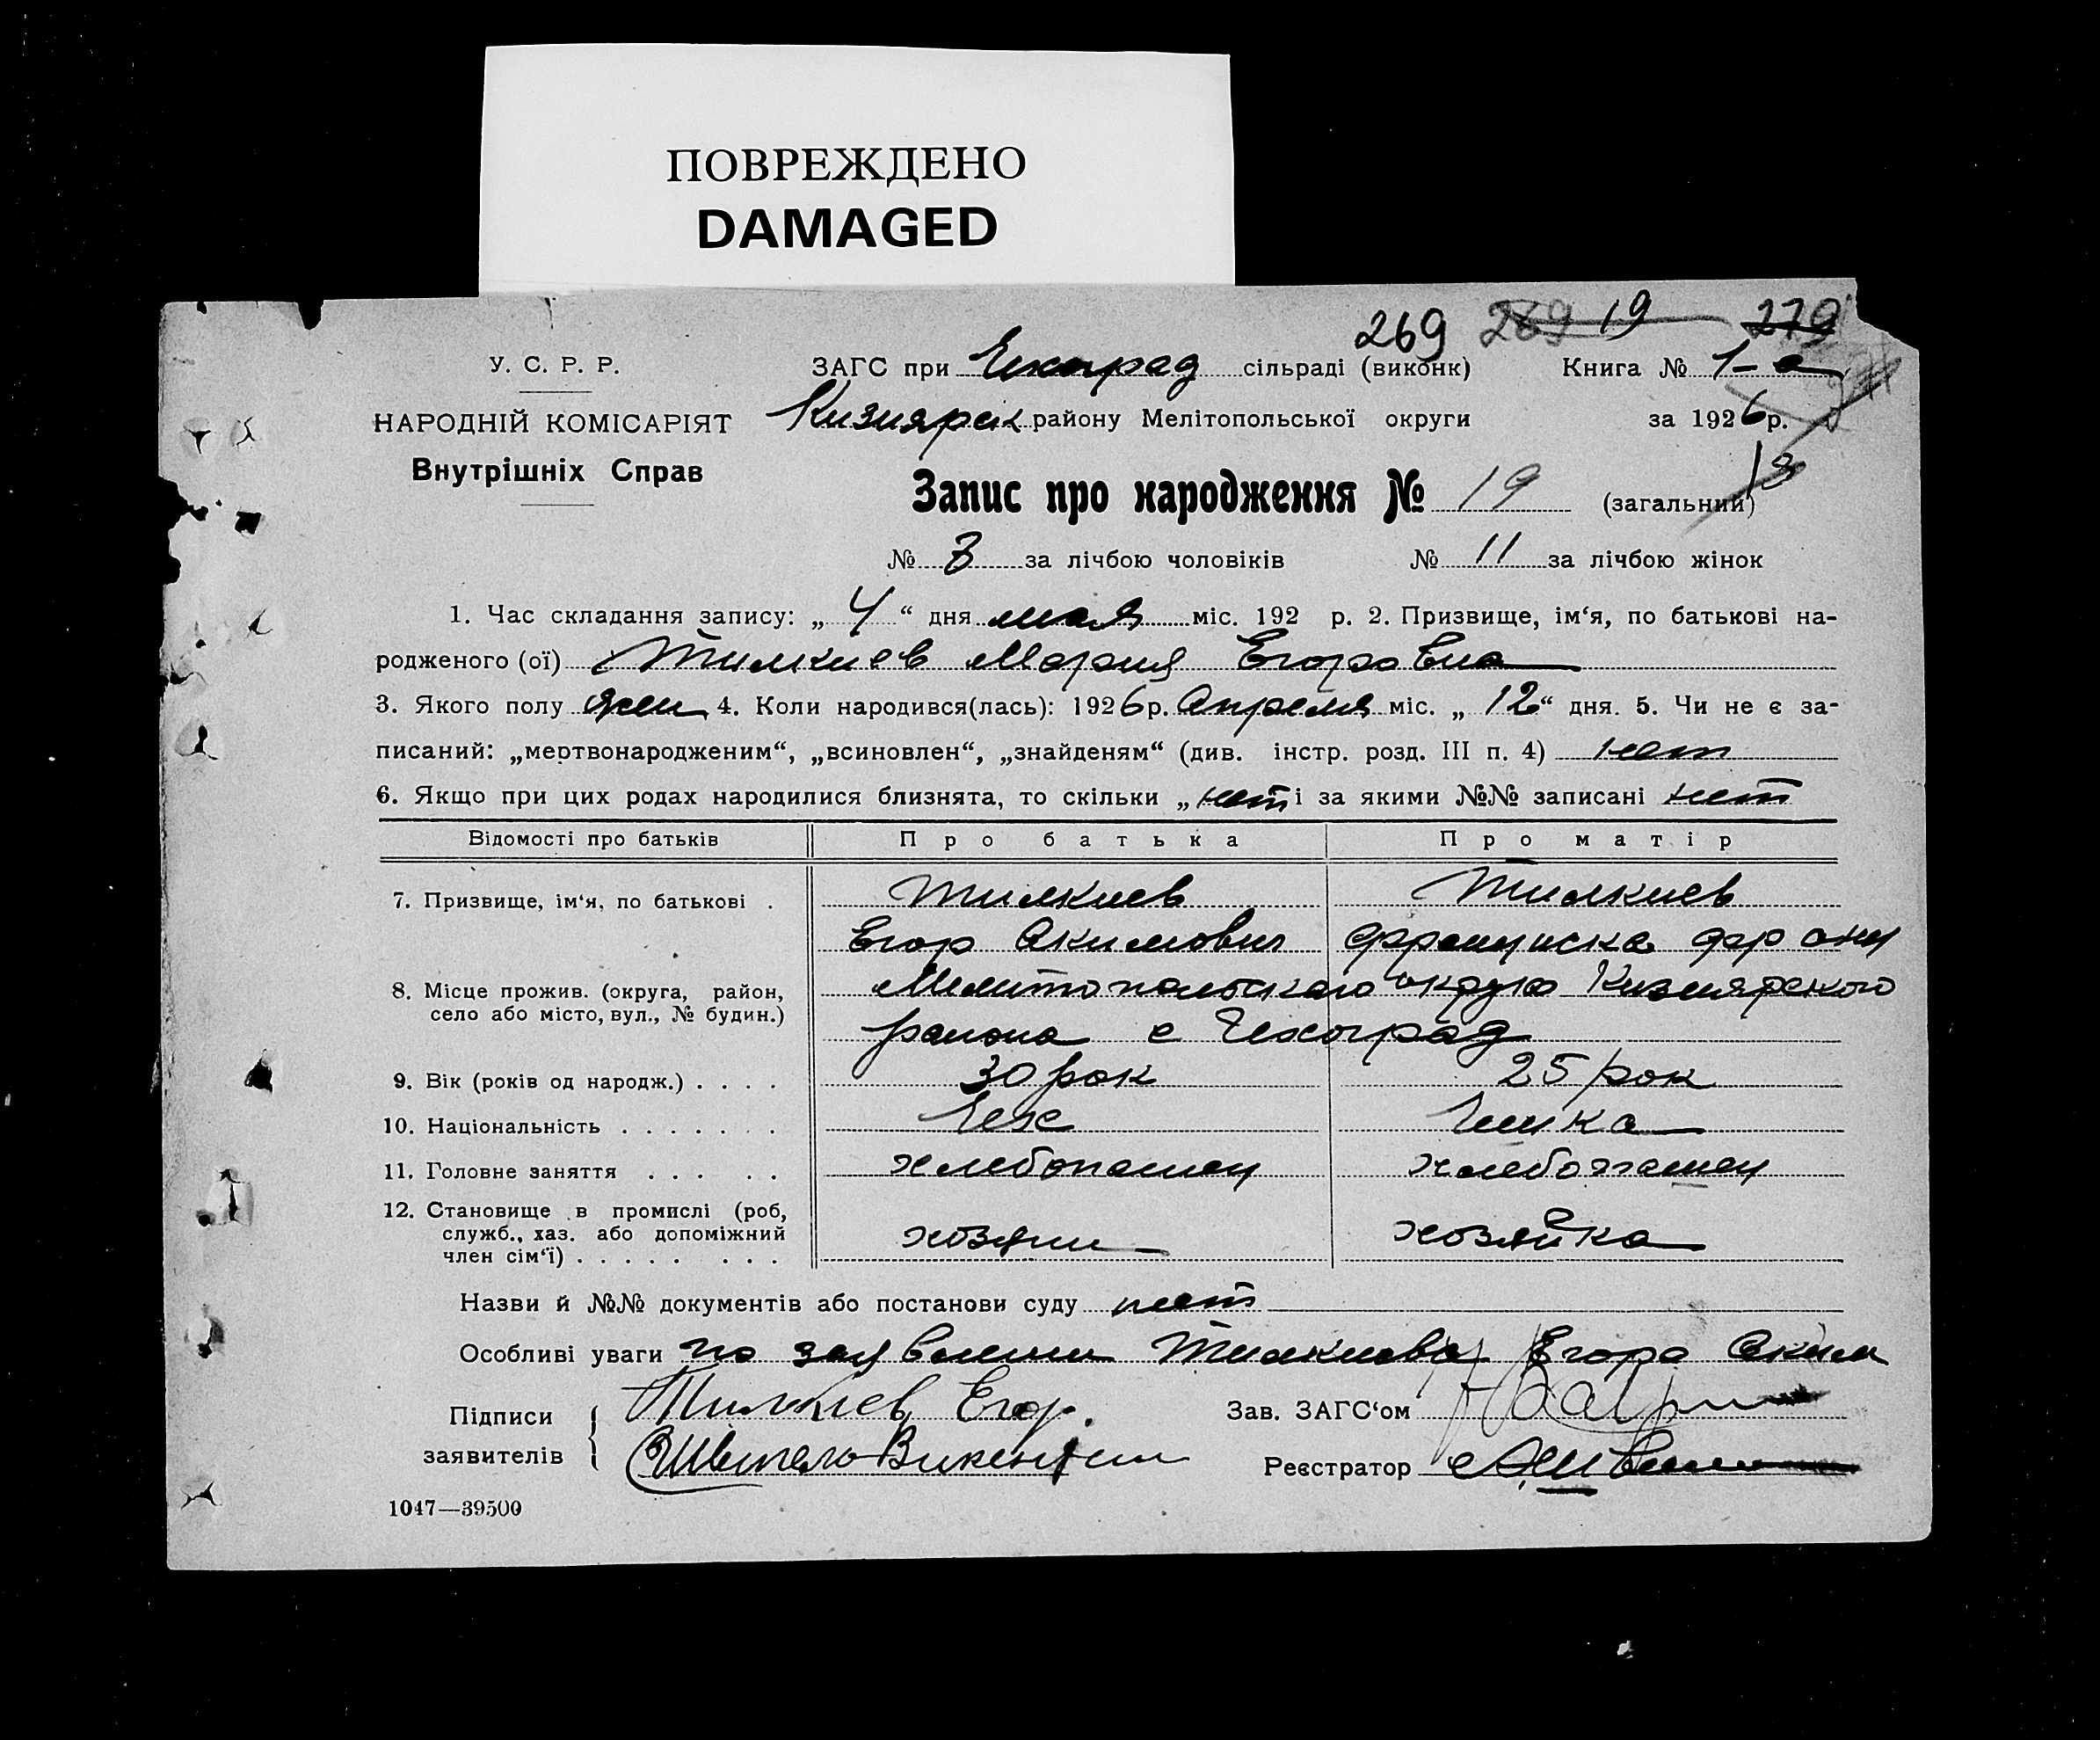 ПОВРЕЖДЕНО
DAMAGED
269 269 19 279
У. С. Р. Р.
ЗАГС при Чехоград сільраді (виконк)
Книга № 1-а
НАРОДНІЙ КОМІСАРІЯТ
Внутрішніх Справ
Кизиярск району Мелітопольської округи
за 1926 р.
Запис про народження № 19 (загальний)
№ 8 за лічбою чоловіків № 11 за лічбою жінок
1. Час складання запису: „ 4 “ дня мая міс. 192 р. 2. Призвище, ім‘я, по батькові на-
родженого (ої) Тилкиев Мария Егоровна
3. Якого полу жен 4. Коли народився(лась): 1926 р. Апреля міс. „ 12 “ дня. 5. Чи не є за-
писаний: „мертвонародженим“, „всиновлен“, „знайденям“ (див. інстр. розд. III п. 4) нет
6. Якщо при цих родах народилися близнята, то скільки „ нет і за якими №№ записані нет
Відомості про батьків Про батька Про матір
7. Призвище, ім‘я, по батькові . Тилкиев Тилкиев
Егор Акимович Француиска Франц
8. Місце прожив. (округа, район,
село або місто, вул., № будин.)
Мелитопольскаго округа Кизиярского
района с Чехоград
9. Вік (років од народж.) . . . . 30 рок 25 рок
10. Національність . . . . . . . Чех Чешка
11. Головне заняття . . . . . хлебопашец хлебопашец
12. Становище в промислі (роб,
служб., хаз. або допоміжний
член сім‘ї) . . . . . . . .
хозяин хозяйка
Назви й №№ документів або постанови суду нет
Особливі уваги по заявлении Тилкиева Егора Аким
Підписи
заявителів
Тилкиев Егор.
Викентий
Зав. ЗАГС‘ом
Реєстратор
1047—39500